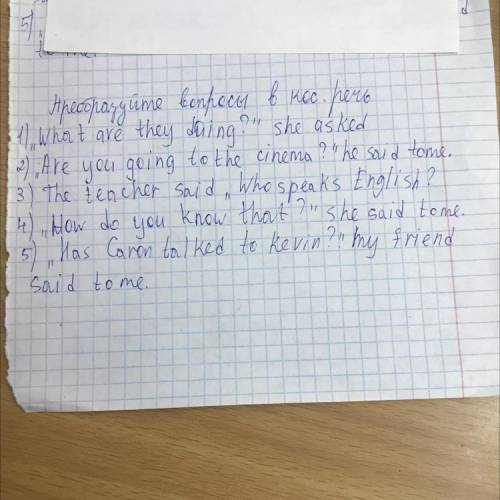 5)
to me.
Преобразуйте вопросы в кос. речь
1) „What are they doing?" she asked
2) „Are you going to the cinema?" he said to me.
3) The teacher said „Who speaks English?
4) „How do you know that?" she said to me.
5) „Has Caron talked to Kevin?" my friend
said to me.